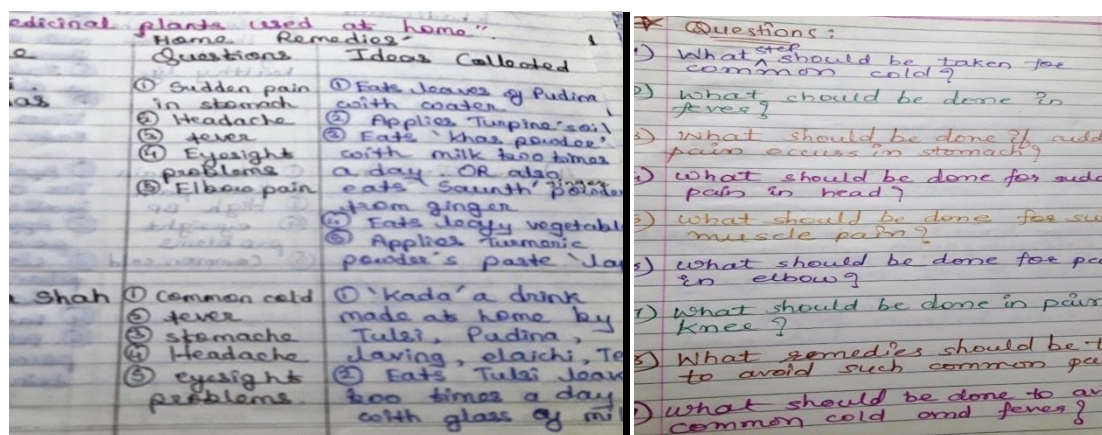 edicinal plants used at home".
Home Remedies
Questions Ideas Collected
① Sudden pain
in stomach
② Headache
③ fever
④ Eyesight
problems
⑤ Elbow pain
① Eats leaves of Pudina
with water
② Applies Turpine's oil
③ Eats 'Khas powder'
with milk two times
a day OR also
ginger
eats 'Saunth' powder
from ginger
④ Eats leafy vegetabl
⑤ Applies Turmeric
powder's paste
Shah
① common cold
② fever
③ stomache
④ Headache
⑤ eyesight
problems
① 'Kada' a drink
made at home by
Tulsi, Pudina,
Laving, elaichi, Te
② Eats Tulsi leav
two times a day
with glass of mil
Questions:
step
What ^ should be taken for
common cold?
What should be done in
fever?
What should be done if sudd
pain occurs in stomach?
what should be done for sudd
pain in head?
what should be done for su
muscle pain?
what should be done for pa
in elbow?
What should be done in pain
Knee?
What remedies should be t
to avoid such common pa
what should be done to av
common cold and fever?